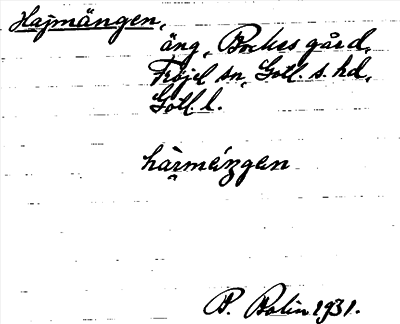 Hajmängen,
äng, Bockes gård,
Fröjel sn, Gotl. s. hd,
Gotl. l.
hàrmèngen
P. Bolin 1931.